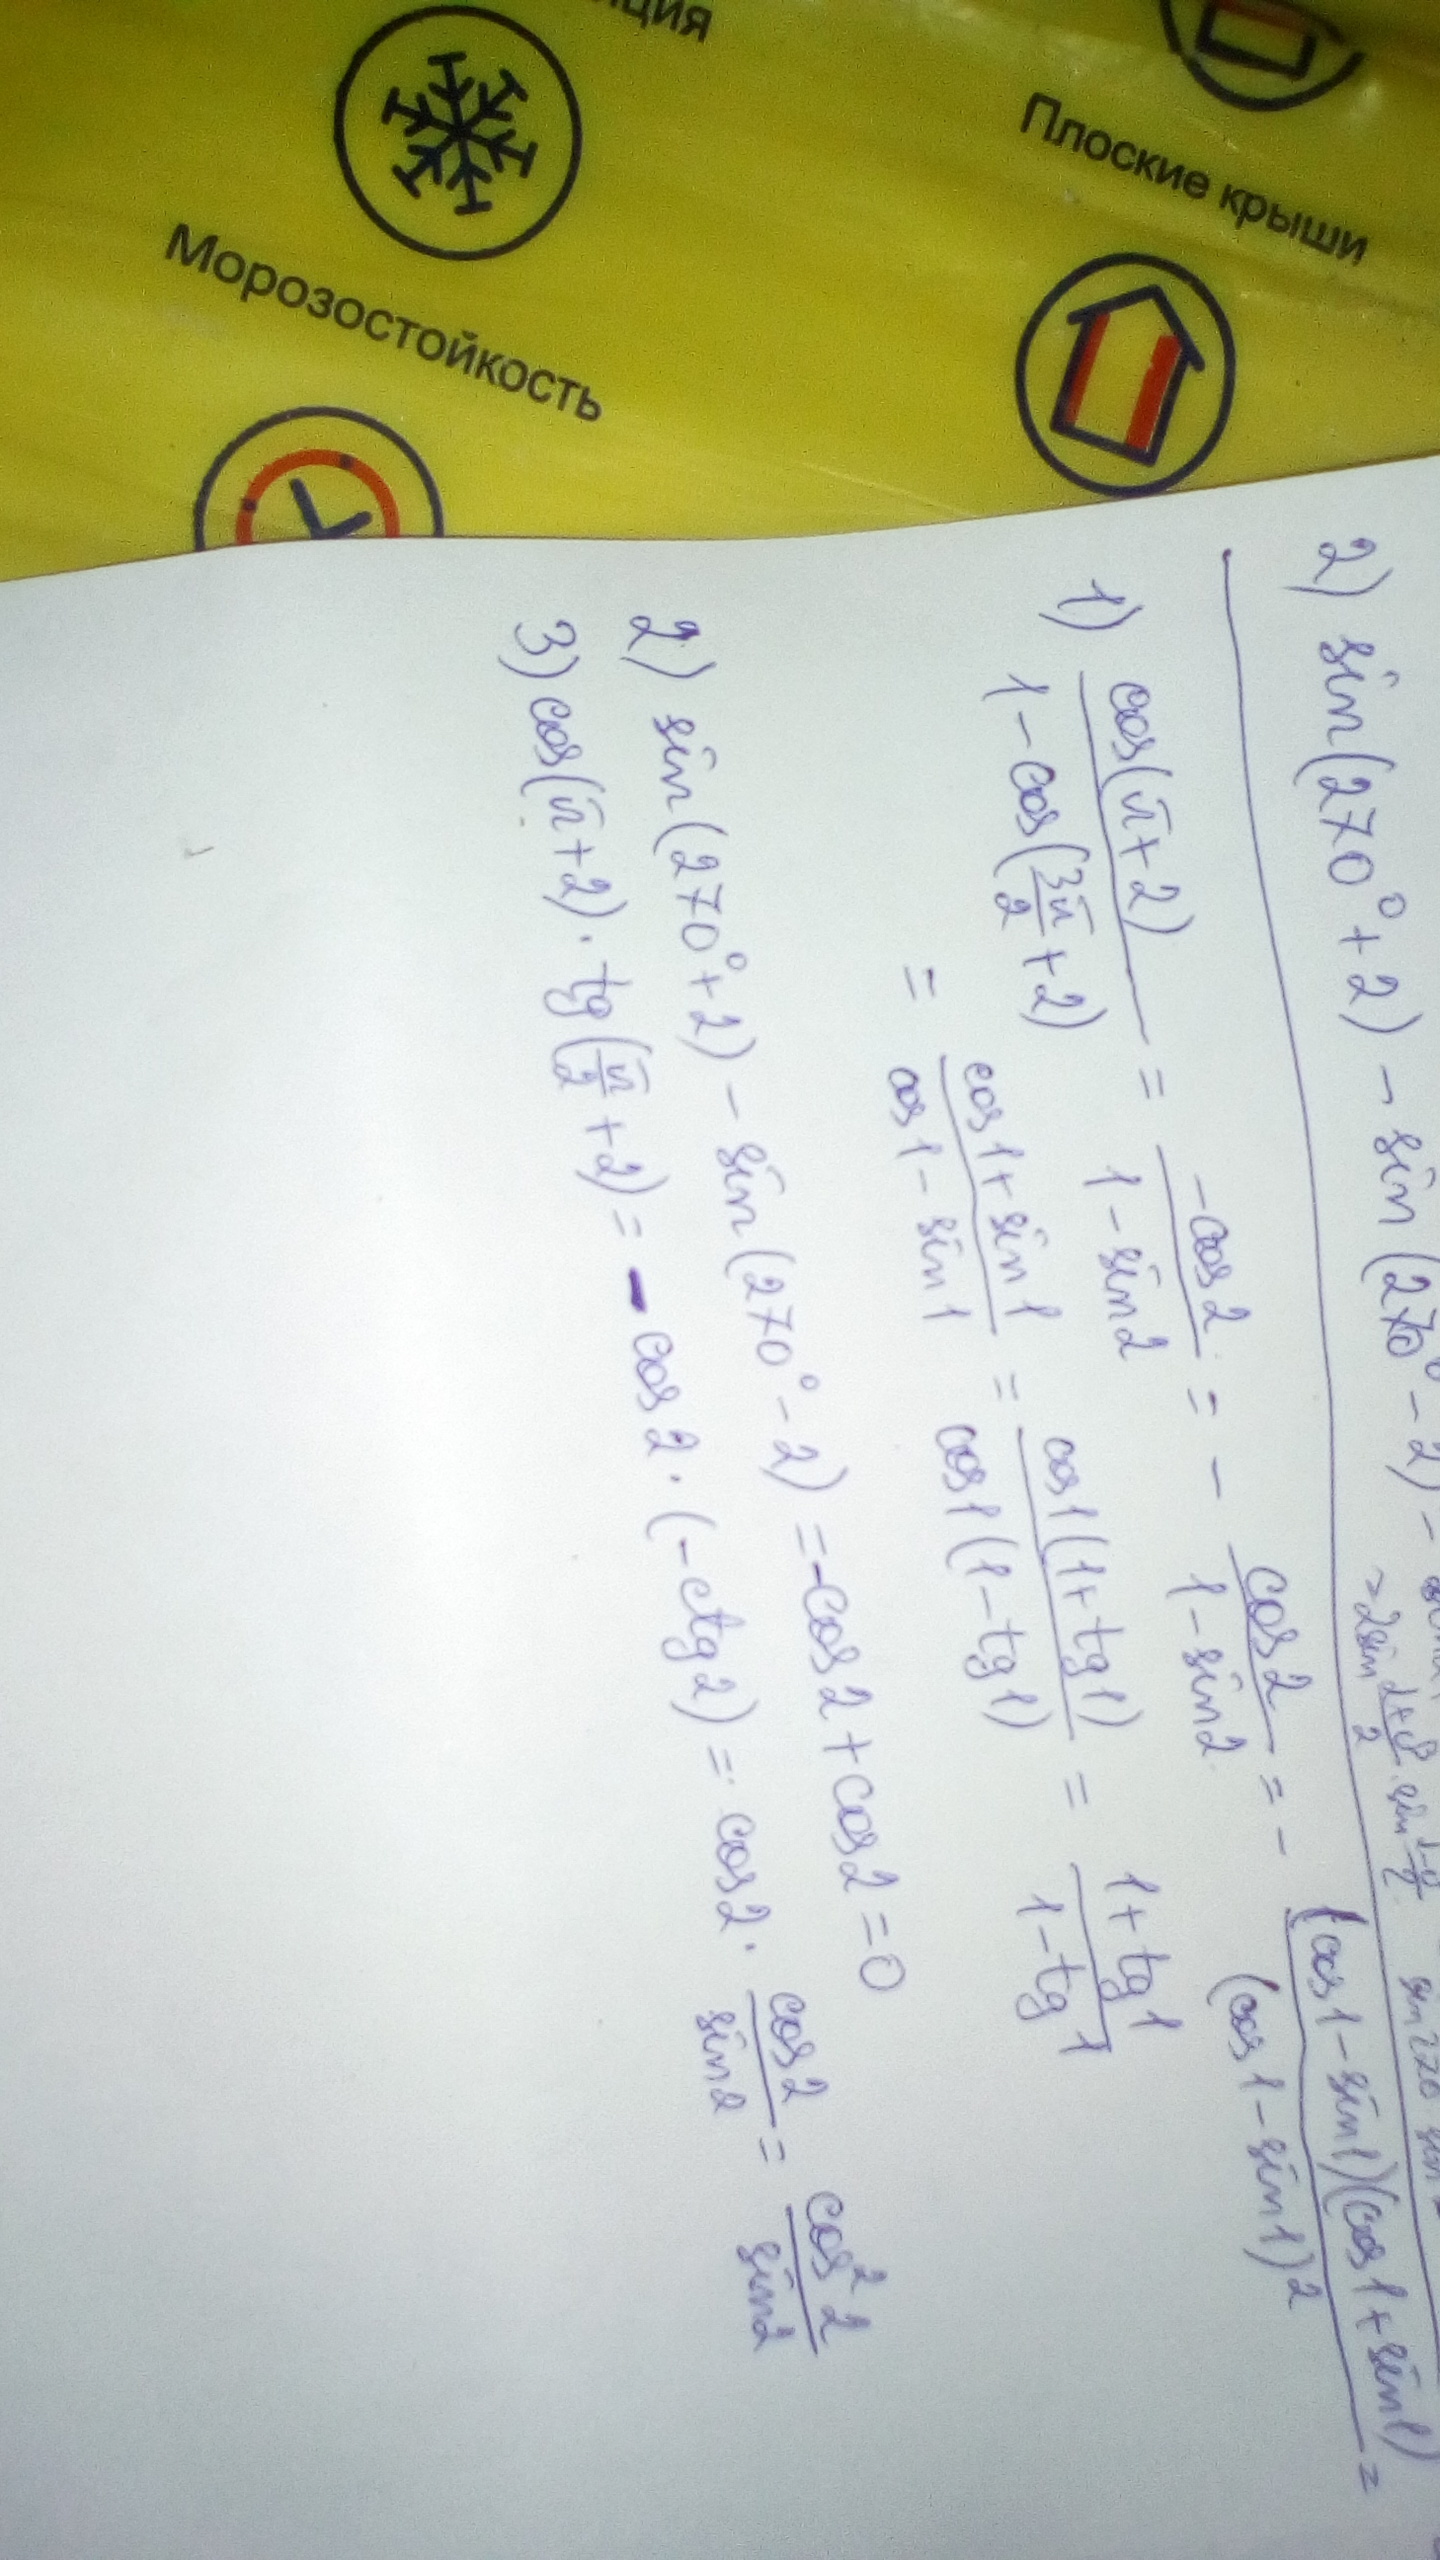 Плоские крыши
Морозостойкость
2) sin(270° + 2) - sin(270° - 2) -
1) cos(π+2) / (1 - cos(3π/2 + 2)) = -cos2 / (1 - sin2) = - cos2 / (1 - sin2) = - (cos1 - sin1)(cos1 + sin1) / (cos1 - sin1)² =
= (cos1 + sin1) / (cos1 - sin1) = cos1(1 + tg1) / cos1(1 - tg1) = (1 + tg1) / (1 - tg1)
2) sin(270° + 2) - sin(270° - 2) = -cos2 + cos2 = 0
3) cos(π+2) · tg(π/2 + 2) = - cos2 · (-ctg2) = cos2 · cos2/sin2 = cos²2/sin2